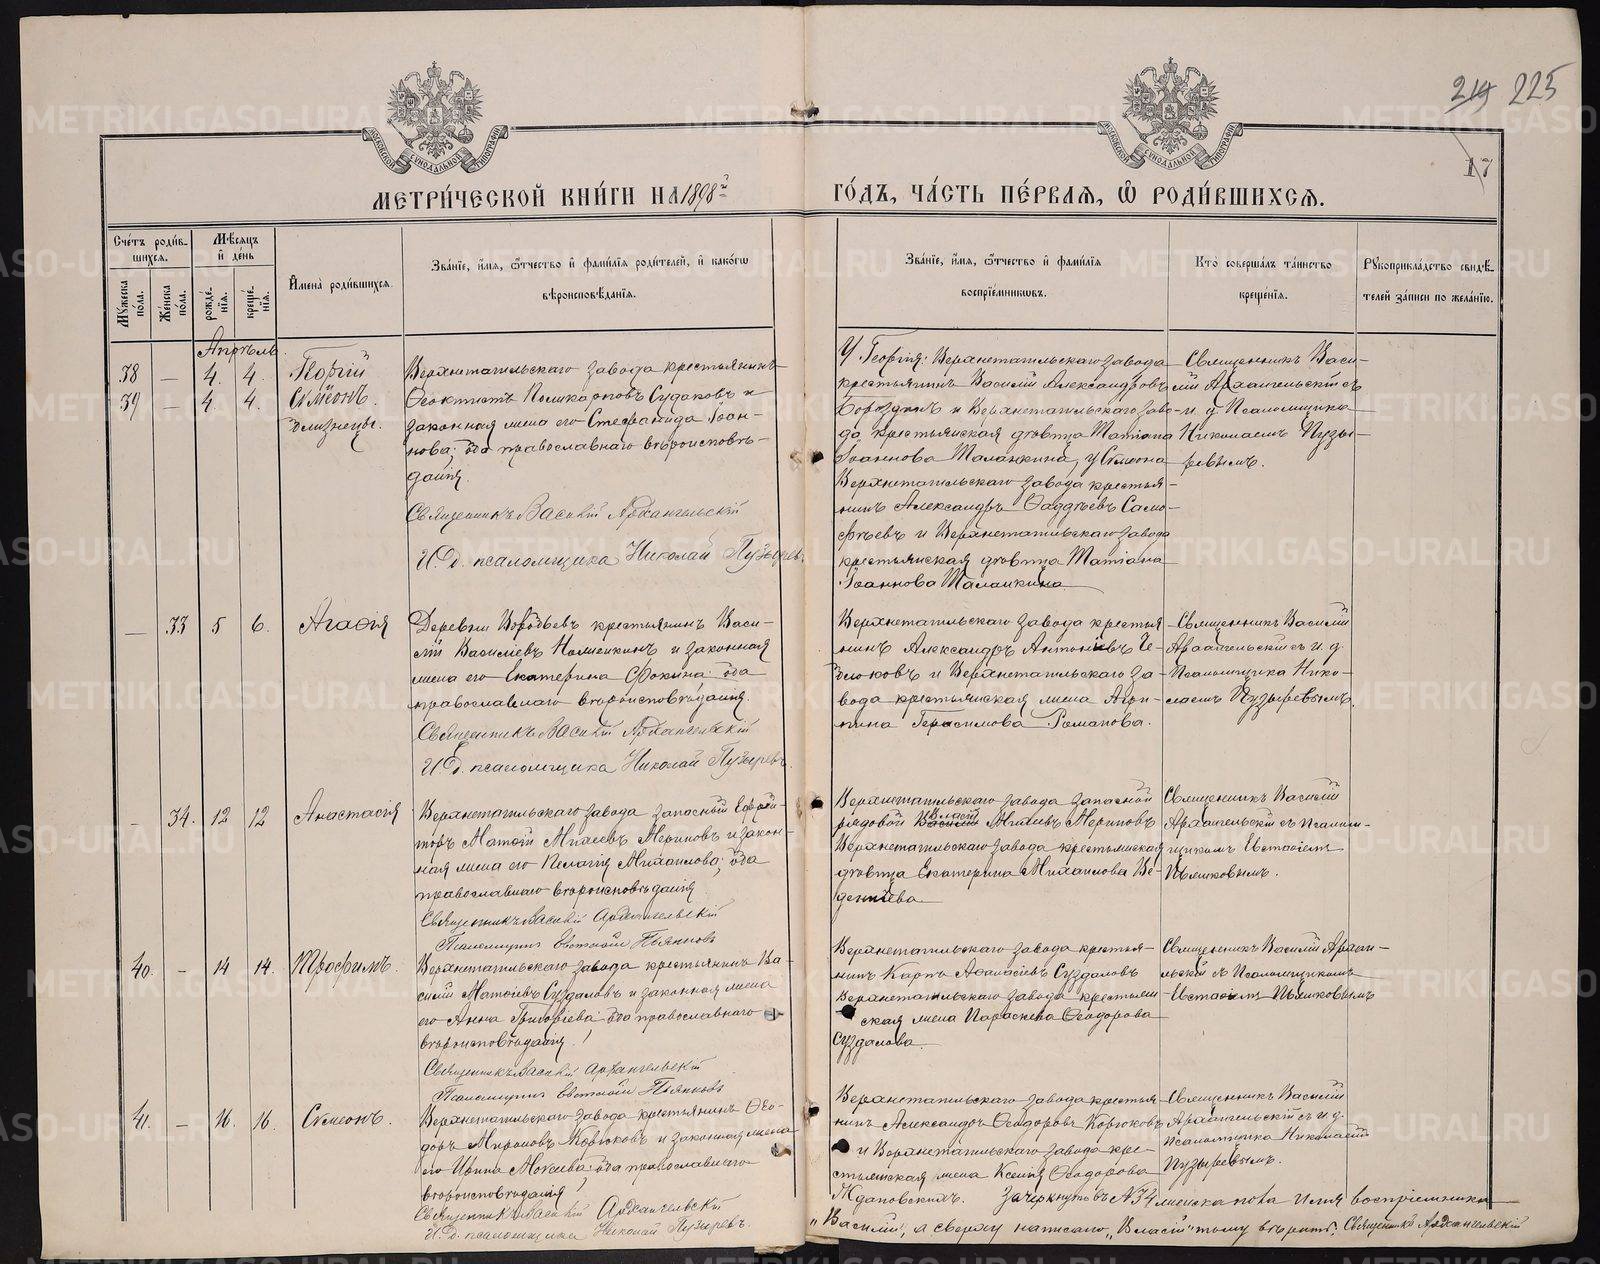 219 225
17
МЕТРИ́ЧЕСКОЙ КНИ́ГИ НА 1898й ГО́ДЪ, ЧА́СТЬ ПЕ́РВАЯ, Ѽ РОДИ́ВШИХСЯ.
Сче́тъ роди́в-
шихся.
Му́жеска по́ла.
Же́нска по́ла.
Мѣ́сяцъ
и҆ де́нь
рожде́-
нїѧ.
креще́-
нїѧ.
И҆мена̀ роди́вшихся.
Зва́нїе, и҆́мѧ, ѻ҆́тчество и҆ фами́лїѧ роди́телей, и҆ како́гѡ
вѣроисповѣ́данїѧ.
Зва́нїе, и҆́мѧ, ѻ҆́тчество и҆ фами́лїѧ
воспрїе́мниковъ.
Кто̀ соверша́лъ та́инство
креще́нїѧ.
Рꙋкоприкла́дство свидѣ́-
телей за́писи по жела́нїю.
Апрѣль.
38 — 4. 4. Георгій
39 — 4. 4. Сѵмеонъ.
близнецы.
Верхнетагильскаго завода крестьянинъ
Ѳеоктистъ Поликарповъ Судаковъ и
законная жена его Стефанида Іоан-
нова; оба православнаго вѣроисповѣ-
данія.
Священникъ Василій Архангельскій
И. д. псаломщика Николай Пузыревъ.
У Георгія: Верхнетагильскаго завода
крестьянинъ Василій Александровъ
Бороздинъ и Верхнетагильскаго заво-
да крестьянская дѣвица Татіана
Іоаннова Маланкина, у Сѵмеона
Верхнетагильскаго завода крестья-
нинъ Александръ Ѳаддѣевъ Сало-
и Верхнетагильскаго завода
крестьянская дѣвица Татіана
Іоаннова Маланкина
Священникъ Васи-
лій Архангельскій съ
и. д. Псаломщика
Николаемъ Пузы-
ревымъ.
— 33 5 6. Агафія
Деревни Воробьевъ крестьянинъ Васи-
лій Василіевъ и законная
жена его Екатерина Фокина; оба
православнаго вѣроисповѣданія.
Священникъ Василій Архангельскій
И. д. псаломщика Николай Пузыревъ.
Верхнетагильскаго завода крестья-
нинъ Александръ Антоніевъ
и Верхнетагильскаго за-
вода крестьянская жена Агри-
пина Герасимова Романова.
Священникъ Василій
Архангельскій съ и. д.
Псаломщика Нико-
лаемъ Пузыревымъ.
— 34. 12 12 Анастасія
Верхнетагильскаго завода запасный Ефрей-
торъ Матѳій Михеевъ Мериновъ и закон-
ная жена его Пелагія Михаилова; оба
православнаго вѣроисповѣданія
Священникъ Василій Архангельскій
Псаломщикъ Евстафій Пьянковъ
Верхнетагильскаго завода запасной
рядовой Василій Власій Михеевъ Мериновъ
Верхнетагильскаго завода крестьянская
дѣвица Екатерина Михаилова Ве-
Священникъ Василій
Архангельскій съ псалом-
щикомъ Евстафіемъ
Пьянковымъ.
40. — 14 14. Трофимъ.
Верхнетагильскаго завода крестьянинъ Ва-
силій Матѳіевъ Суздаловъ и законная жена
его Анна Григоріева; оба православнаго
вѣроисповѣданія.
Священникъ Василій Архангельскій
Псаломщикъ Евстафій Пьянковъ
Верхнетагильскаго завода крестья-
нинъ Карпъ Аѳанасіевъ Суздаловъ
Верхнетагильскаго завода крестьян-
ская жена Параскева Ѳеодорова
Суздалова.
Священникъ Василій Архан-
гельскій съ Псаломщикомъ
Евстафіемъ Пьянковымъ
41. — 16. 16. Сѵмеонъ.
Верхнетагильскаго завода крестьянинъ Ѳео-
доръ Мироновъ Корюковъ и законная жена
его Ирина Мокеева; оба православнаго
вѣроисповѣданія
Священникъ Василій Архангельскій
И. д. псаломщика Николай Пузыревъ.
Верхнетагильскаго завода крестья-
нинъ Александръ Ѳеодоровъ Корюковъ
и Верхнетагильскаго завода кре-
стьянская жена Ксенія Ѳеодорова
Ждановскихъ.
Священникъ Василій
Архангельскій съ и. д.
псаломщика Николаемъ
Пузыревымъ.
Зачеркнуто въ № 34 женска пола имя воспріемника
„Василій", а сверху написано „Власій" тому вѣрить. Священникъ Архангельскій
METRIKI.GASO-URAL.RU